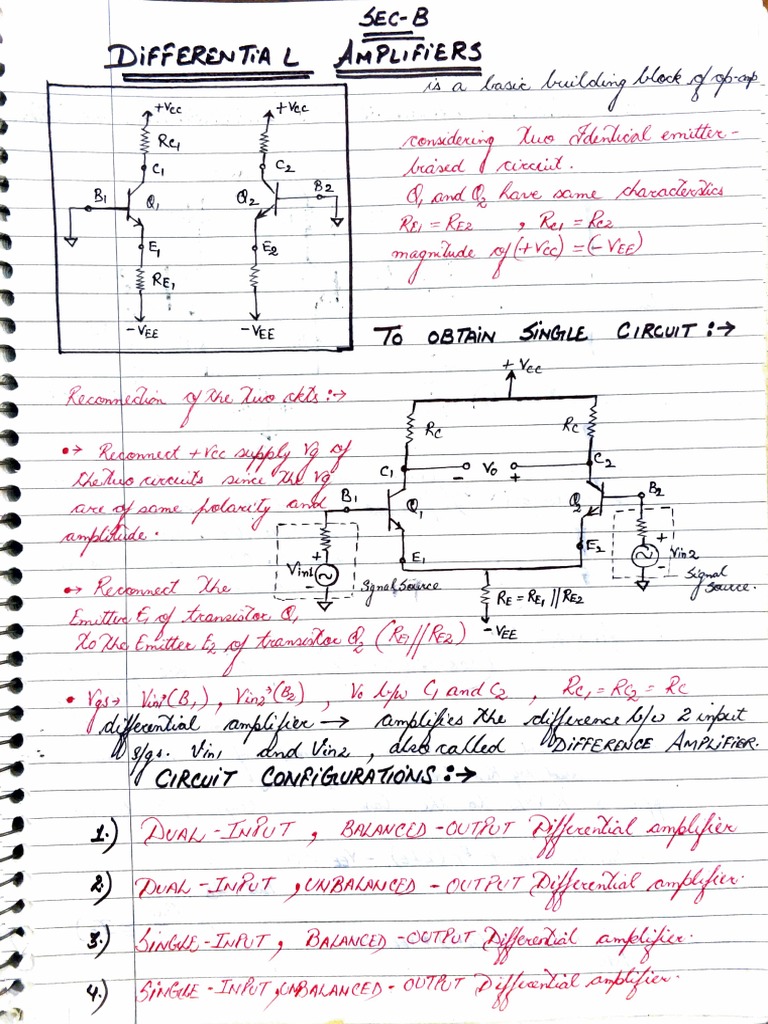 SEC-B
DIFFERENTIAL AMPLIFIERS
is a basic building block of op-amp
+Vcc
+Vcc
RC1
C1
C2
B1
Q1
Q2
B2
E1
E2
RE1
-VEE
-VEE
considering two Identical emitter-
biased circuit.
Q1 and Q2 have same characteristics
RE1 = RE2 , RC1 = RC2
magnitude of (+Vcc) = (-VEE)
TO OBTAIN SINGLE CIRCUIT :→
Reconnection of the two ckts :→
•→ Reconnect +Vcc supply Vg of
the two circuits since the Vg
are of same polarity and
amplitude.
•→ Reconnect the
Emitter E1 of transistor Q1
to the Emitter E2 of transistor Q2 (RE1//RE2)
+Vcc
RC
RC
C1
- Vo +
C2
B1
Q1
Q2
B2
E1
E2
+
Vin1
-
Signal Source
+
Vin2
-
Signal
Source.
RE = RE1 // RE2
-VEE
• Vgs→ Vin1→(B1) , Vin2→(B2) , Vo b/w C1 and C2 , RC1 = RC2 = RC
differential amplifier → amplifies the difference b/w 2 input
s/gs. Vin1 and Vin2 , also called DIFFERENCE AMPLIFIER.
CIRCUIT CONFIGURATIONS :→
1.) DUAL-INPUT , BALANCED-OUTPUT Differential amplifier
2.) DUAL-INPUT , UNBALANCED-OUTPUT Differential amplifier.
3.) SINGLE-INPUT , BALANCED-OUTPUT Differential amplifier.
4.) SINGLE-INPUT , UNBALANCED-OUTPUT Differential amplifier.